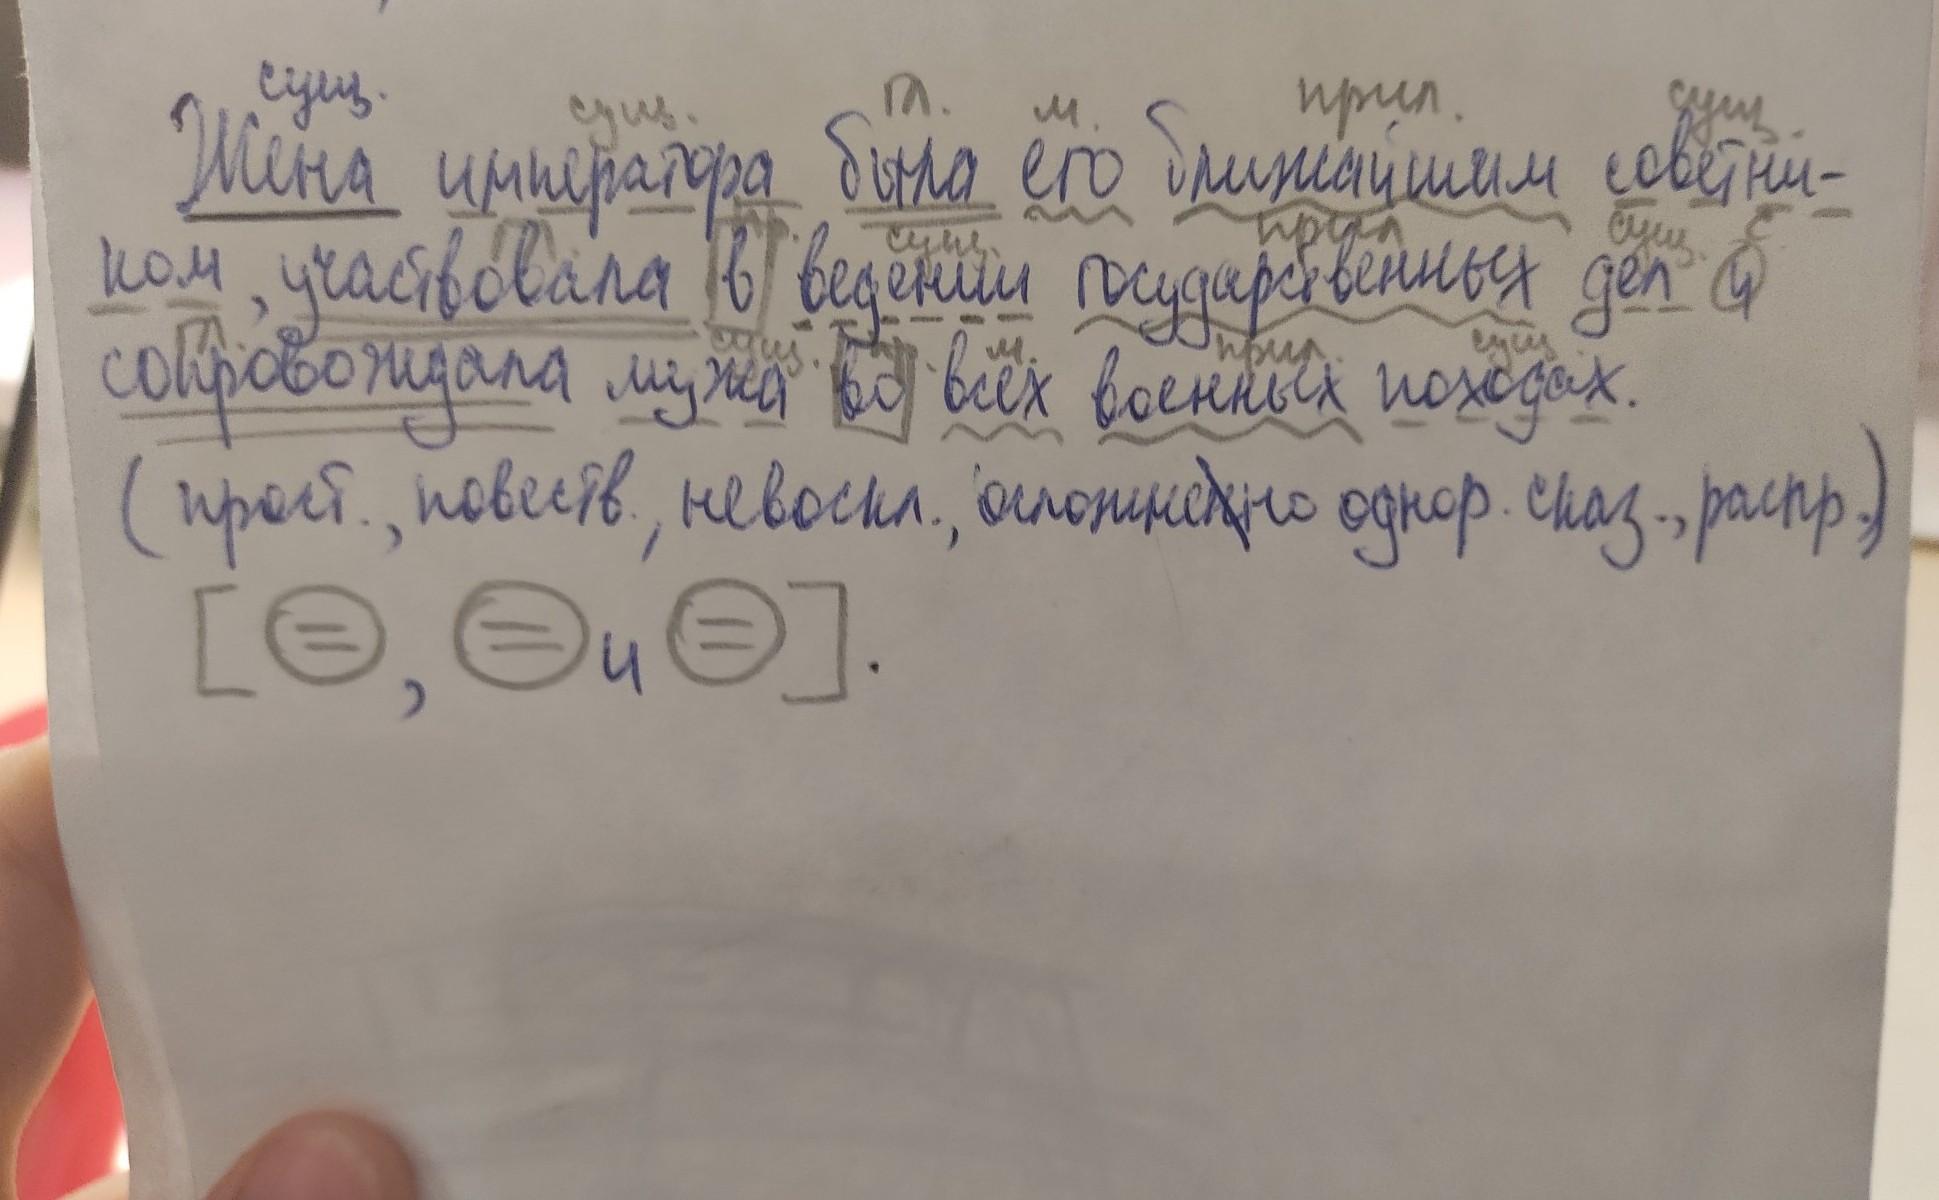 сущ. сущ. гл. м. прил. сущ.
Жена императора была его ближайшим советни-
гл. пр. сущ. прил сущ. с.
ком, участвовала в ведении государственных дел и
гл. сущ. пр. м. прил. сущ.
сопровождала мужа во всех военных походах.
(прост., повеств., невоскл., осложнено однор. сказ., распр.)
[=, = и =].